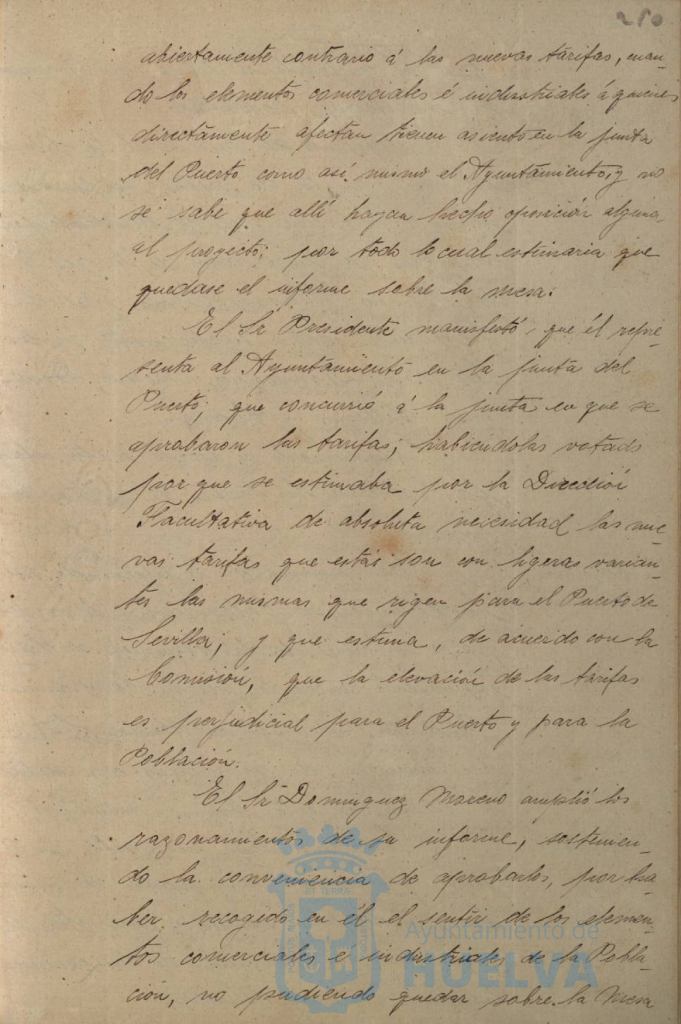 210
abiertamente contrario á las nuevas tarifas, cuan-
do los elementos comerciales é industriales á quienes
directamente afectan tienen asiento en la junta
del Puerto como así mismo el Ayuntamiento, y no
se sabe que allí hayan hecho oposición alguna
al proyecto; por todo lo cual estimaria que
quedase el informe sobre la mesa.
El Sr Presidente manifestó, que él repre-
senta al Ayuntamiento en la junta del
Puerto; que concurrió á la junta en que se
aprobaron las tarifas; habiéndolas votado
por que se estimaba por la Dirección
Facultativa de absoluta necesidad las nue-
vas tarifas que estas son con ligeras varian-
tes las mismas que rigen para el Puerto de
Sevilla; y que estima, de acuerdo con la
Comisión, que la elevación de las tarifas
es perjudicial para el Puerto y para la
Población.
El Sr Dominguez Moreno amplió los
razonamientos de su informe, sostenien-
do la conveniencia de aprobarlos, por ha-
ber recogido en él el sentir de los elemen-
tos comerciales é industriales de la Pobla-
ción, no pudiendo quedar sobre la Mesa
Ayuntamiento de
HUELVA